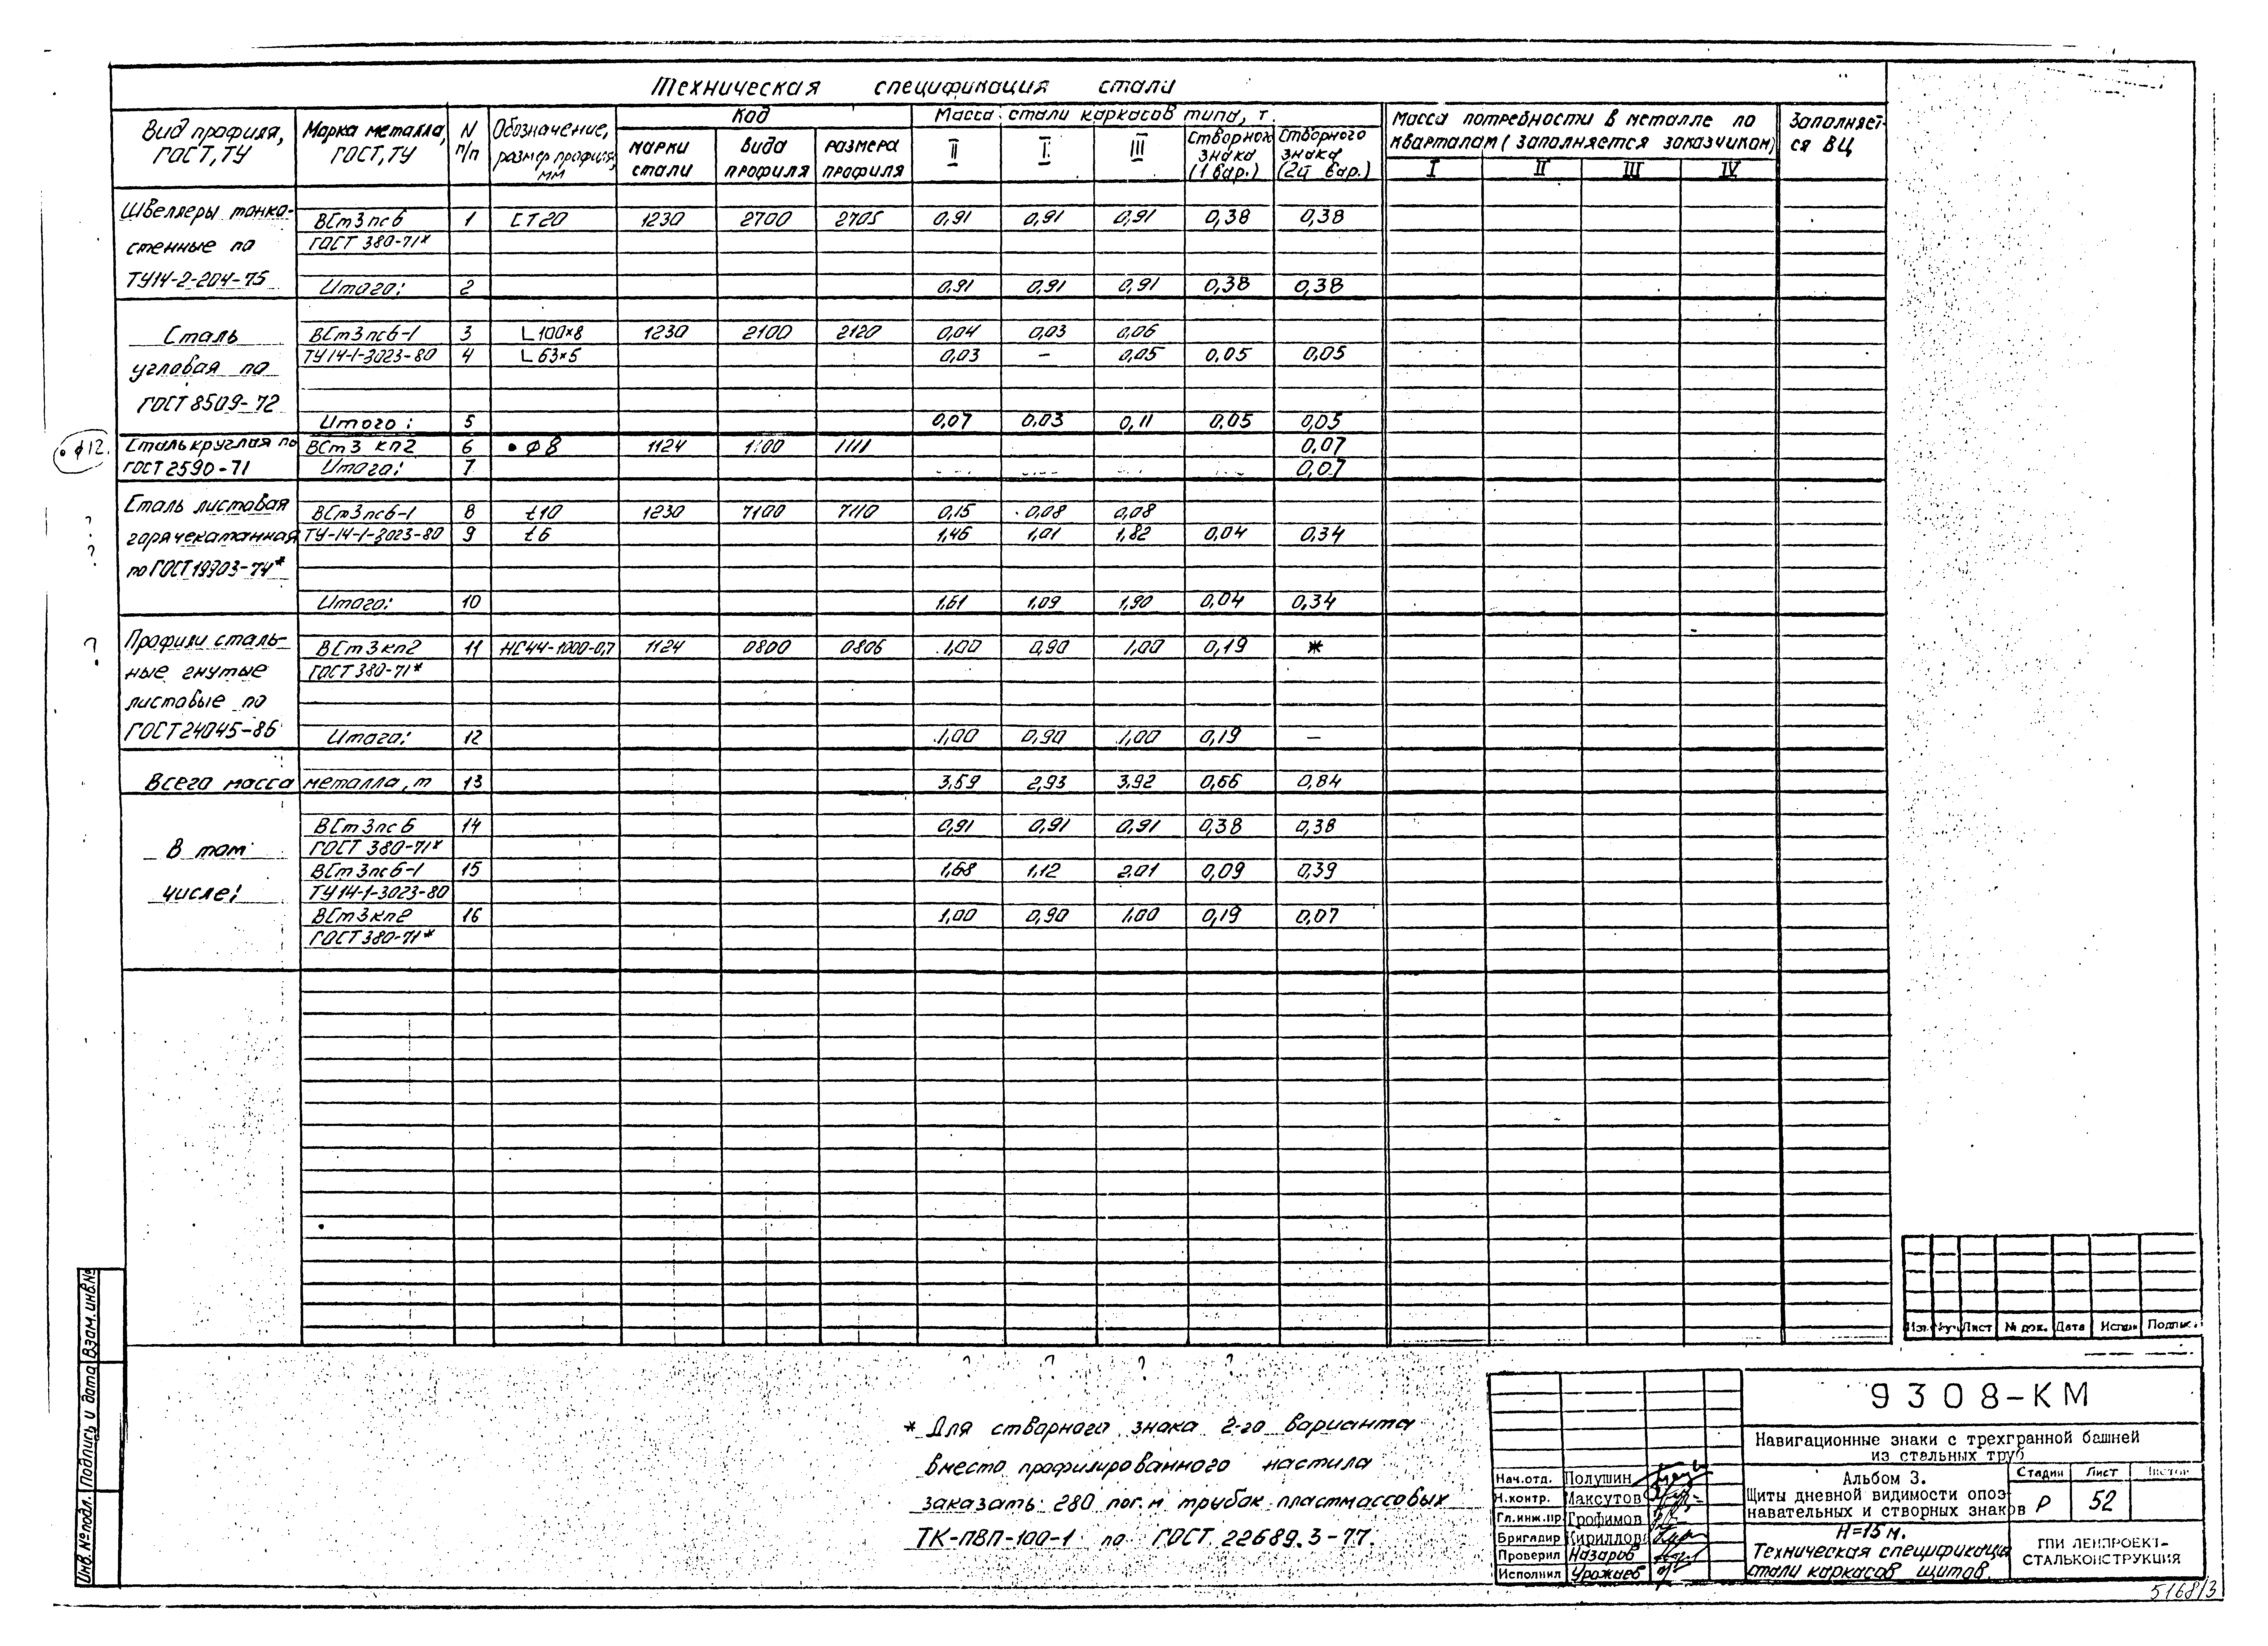 Техническая спецификация стали
Вид профиля, ГОСТ, ТУ
Марка металла, ГОСТ, ТУ
N п/п
Обозначение, размер профиля, мм
Код
марки стали
вида профиля
размера профиля
Масса стали каркасов типа, т.
II
I
III
Створного знака (1 вар.)
Створного знака (2й вар.)
Масса потребности в металле по кварталам (заполняется заказчиком)
I II III IV
Заполняется ВЦ
Швеллеры тонкостенные по ТУ14-2-204-75
ВСт3пс6 1 СТ20 1230 2700 2705 0,91 0,91 0,91 0,38 0,38
ГОСТ 380-71*
Итого: 2 0,91 0,91 0,91 0,38 0,38
Сталь угловая по ГОСТ 8509-72
ВСт3пс6-1 3 L100×8 1230 2100 2120 0,04 0,03 0,06
ТУ14-1-3023-80 4 L63×5 0,03 — 0,05 0,05 0,05
Итого: 5 0,07 0,03 0,11 0,05 0,05
•ϕ12.
Сталь круглая по ГОСТ 2590-71
ВСт3 кп2 6 •ϕ8 1124 1111 0,07
Итого: 7 0,07
Сталь листовая горячекатанная по ГОСТ 19903-74*
ВСт3пс6-1 8 t10 1230 7100 7110 0,15 0,08 0,08
ТУ-14-1-3023-80 9 t6 1,46 1,01 1,82 0,04 0,34
Итого: 10 1,61 1,09 1,90 0,04 0,34
Профили стальные гнутые листовые по ГОСТ 24045-86
ВСт3кп2 11 НС44-1000-0,7 1124 0800 0806 1,00 0,90 1,00 0,19 *
ГОСТ 380-71*
Итого: 12 1,00 0,90 1,00 0,19 —
Всего масса металла, т 13 3,59 2,93 3,92 0,66 0,84
В том числе:
ВСт3пс6 14 0,91 0,91 0,91 0,38 0,38
ГОСТ 380-71*
ВСт3пс6-1 15 1,68 1,12 2,01 0,09 0,39
ТУ14-1-3023-80
ВСт3кп2 16 1,00 0,90 1,00 0,19 0,07
ГОСТ 380-71*
* Для створного знака 2-го варианта
вместо профилированного настила
заказать 280 пог.м трубок пластмассовых
ТК-ПВП-100-1 по ГОСТ 22689.3-77.
Лист № док. Дата
Инв.№подл. Подпись и дата Взам.инв.№
9308-КМ
Навигационные знаки с трехгранной башней
из стальных труб
Нач.отд. Полушин
Н.контр. Максутов
Гл.инж.пр Трофимов
Бригадир Кириллов
Проверил Назаров
Исполнил Урожаев
Альбом 3.
Щиты дневной видимости опоз-
навательных и створных знаков
Н=15 м.
Техническая спецификация
стали каркасов щитов.
Стадия Лист Листов
Р 52
ГПИ ЛЕНПРОЕКТ-
СТАЛЬКОНСТРУКЦИЯ
5168/3